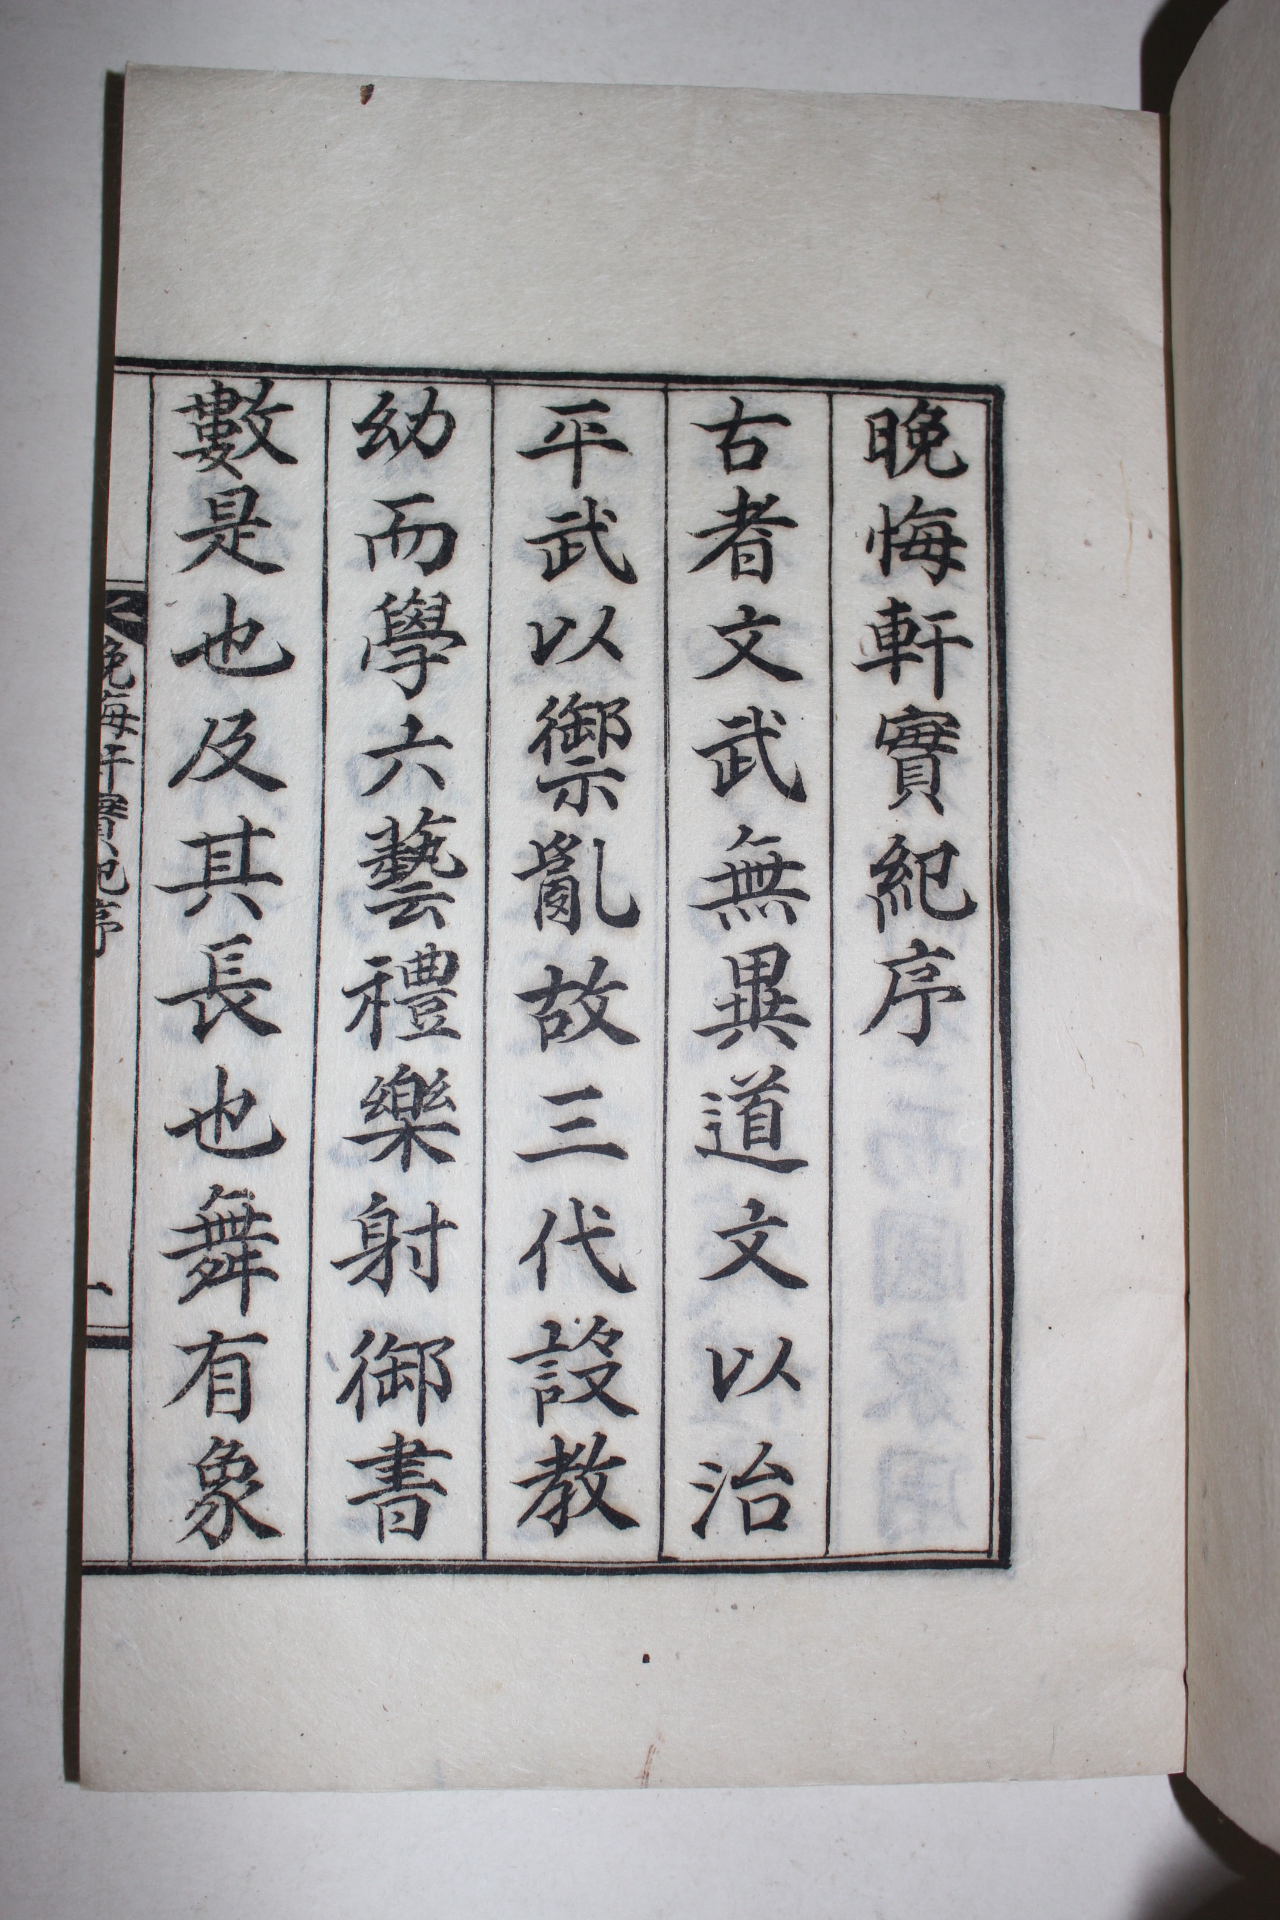 晩悔軒實紀序
古者文武無異道文以治
平武以禦亂故三代設教
幼而學六藝禮樂射御書
數是也及其長也舞有象
晩悔軒實紀序
一